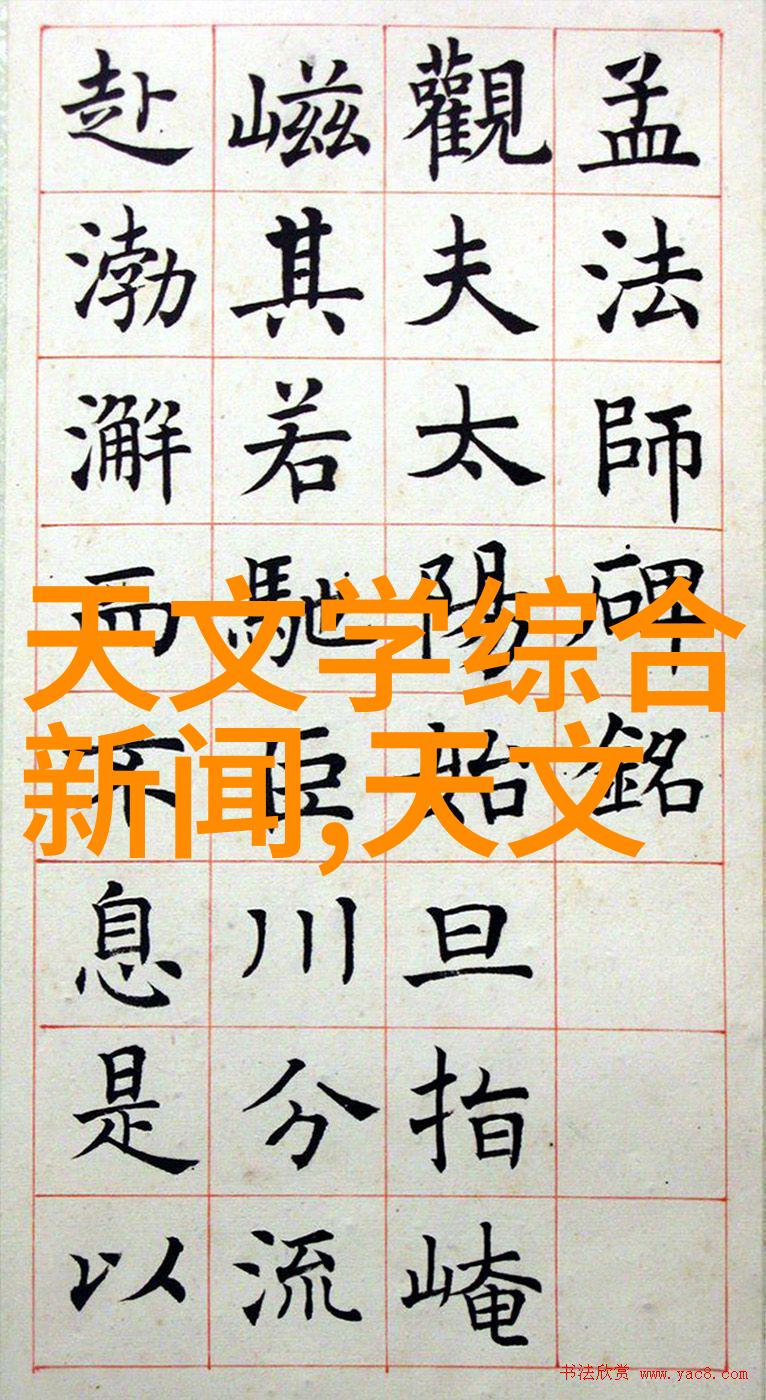 孟法師碑銘
觀夫太陽始旦指崦
嵫其若馳巨川分流
赴渤澥而不息是以
天文学综合
新闻,天文
书法欣赏 www.yac8.com